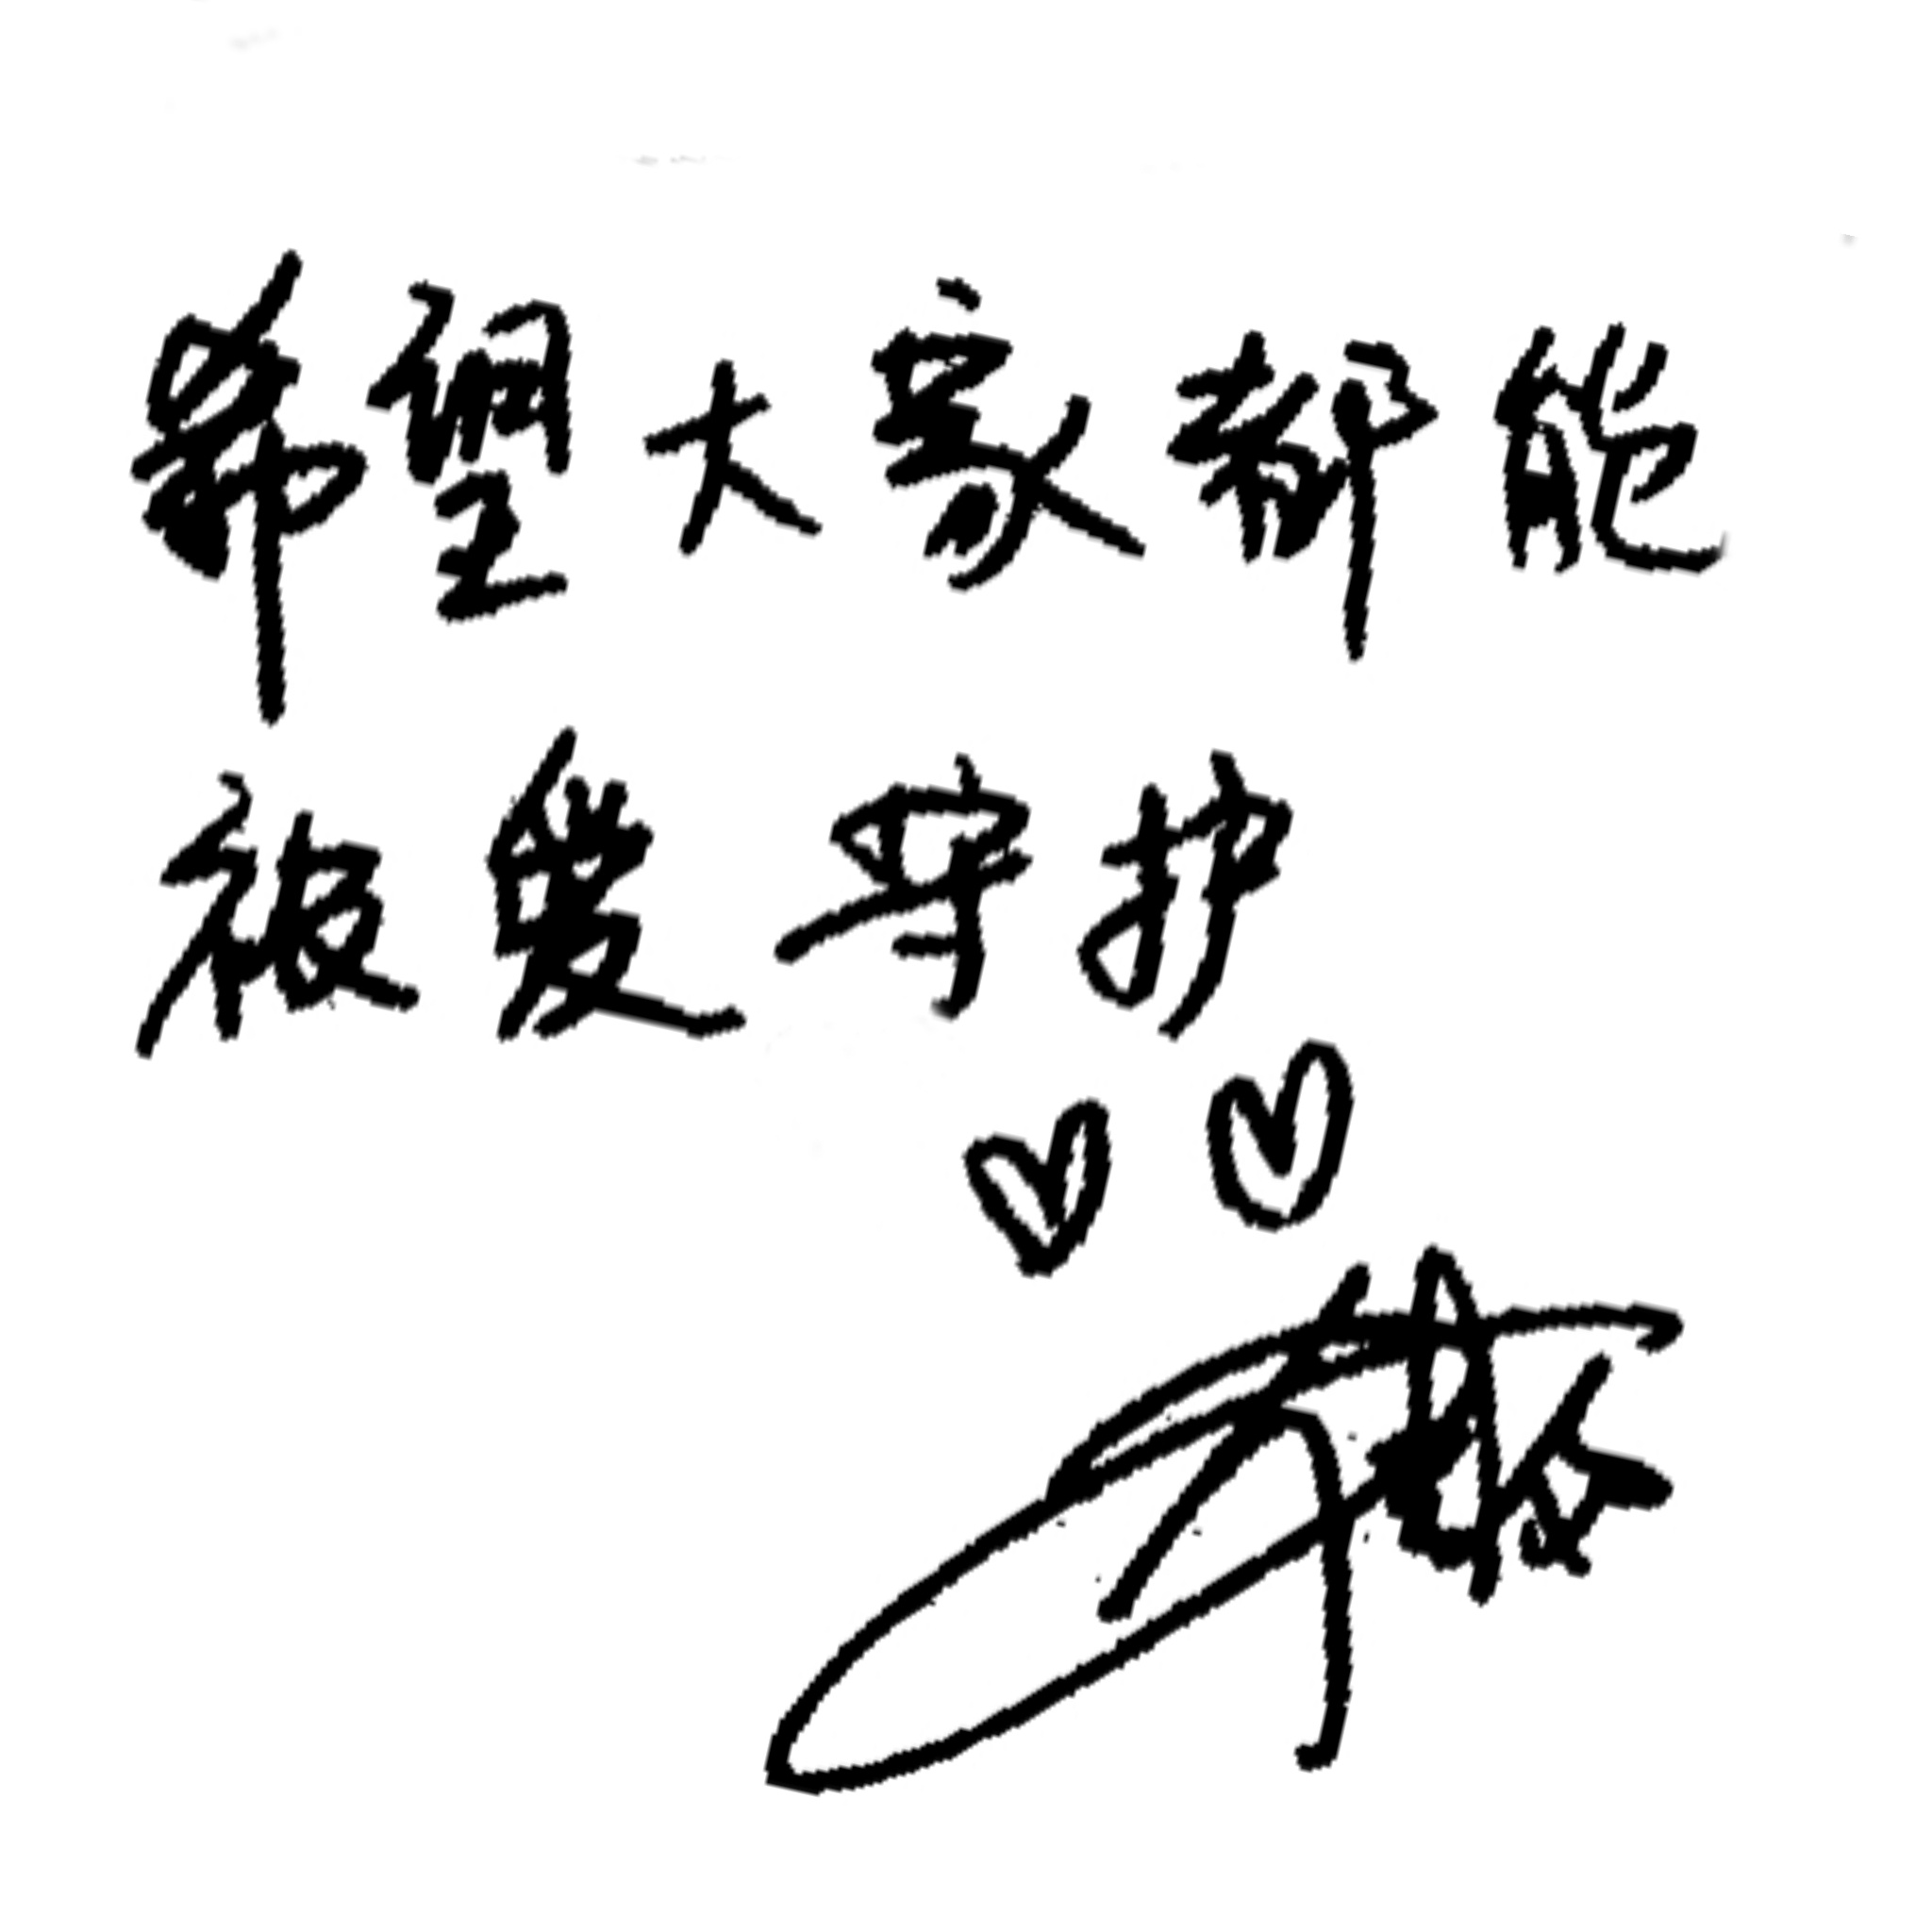 希望大家都能
被爱守护